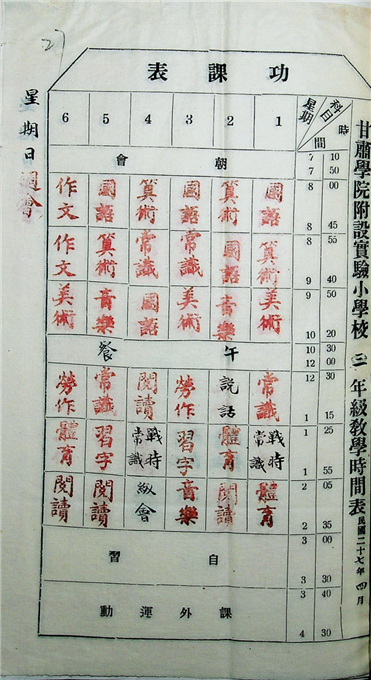 甘肅學院附設實驗小學校 三 年級教學時間表 民國二十七年四月
功課表
科目 時間 星期
1 2 3 4 5 6
7 10 7 50 朝會
8 00 8 45 國語 算術 國語 算術 國語 作文
8 55 9 40 算術 國語 常識 常識 算術 作文
9 50 10 20 美術 音樂 美術 國語 音樂 美術
10 30 12 00 午餐
12 30 1 15 常識 說話 勞作 閱讀 常識 勞作
1 25 1 55 戰時常識 體育 習字 戰時常識 習字 體育
2 05 2 35 體育 閱讀 音樂 級會 閱讀 閱讀
3 00 3 30 自習
3 40 4 30 課外運動
星期日週會
27